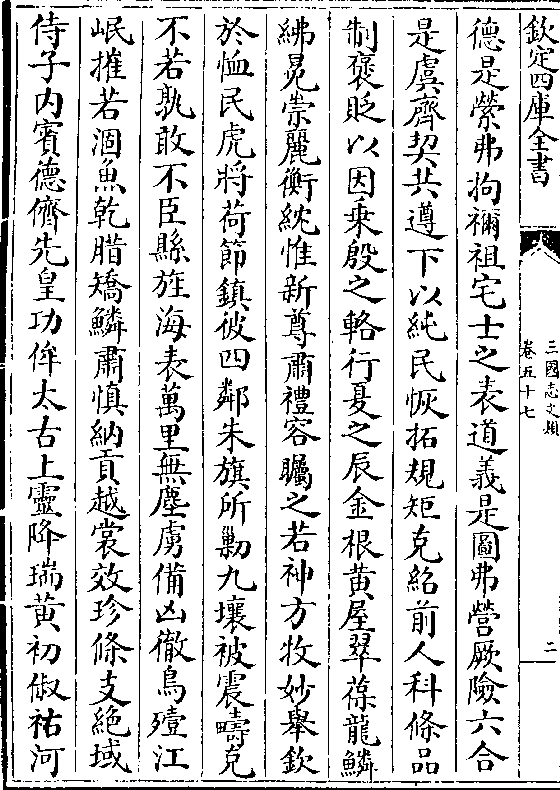 欽定四庫全書
三國志文類
卷五十七
二
德是縈弗拘禰祖宅土之表道義是圖弗營厥險六合
是虞齊契共遵下以純民恢拓規矩克紹前人科條品
制褒貶以因乗殷之輅行夏之辰金根黄屋翠葆龍鱗
紼冕崇麗衡紞惟新尊肅禮容矚之若神方牧妙舉欽
於恤民虎將荷節鎮彼四鄰朱旗所勦九壤被震疇克
不若孰敢不臣縣旌海表萬里無塵虜備凶徹鳥殪江
岷摧若涸魚乾腊矯鱗肅慎納貢越裳效珍條支絶域
侍子内賓德儕先皇功侔太古上靈降瑞黄初俶祐河